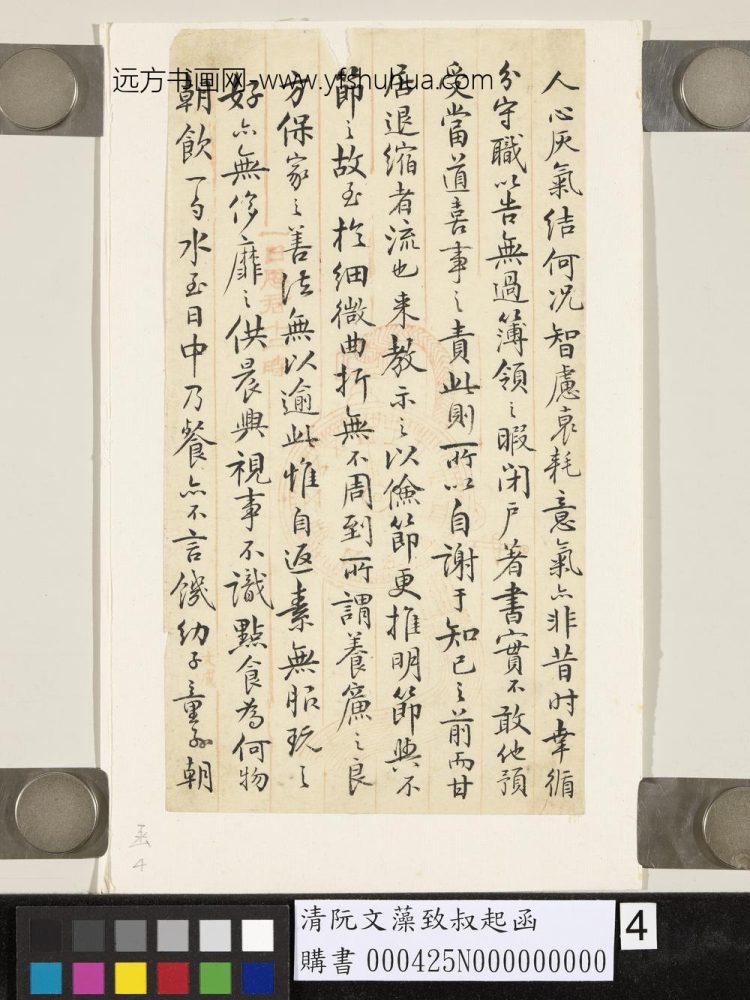 远方书画网-www.yfshuhua.com
人心厌氣結何况智慮衰耗意氣亦非昔时幸循
分守職以告無過簿領之暇闭户著書實不敢他預
受當道喜事之責此則所以自謝于知己之前而甘
居退缩者流也来教示之以儉節更推明節與不
節之故至於细微曲折無不周到所謂養廉之良
方保家之善法無以逾此惟自返素無服玩之
好亦無侈靡之供晨興視事不識點食為何物
朝飲一勺水至日中乃餐亦不言饑幼子童孫朝
函
4
清阮文藻致叔起函
購書 000425N000000000
4